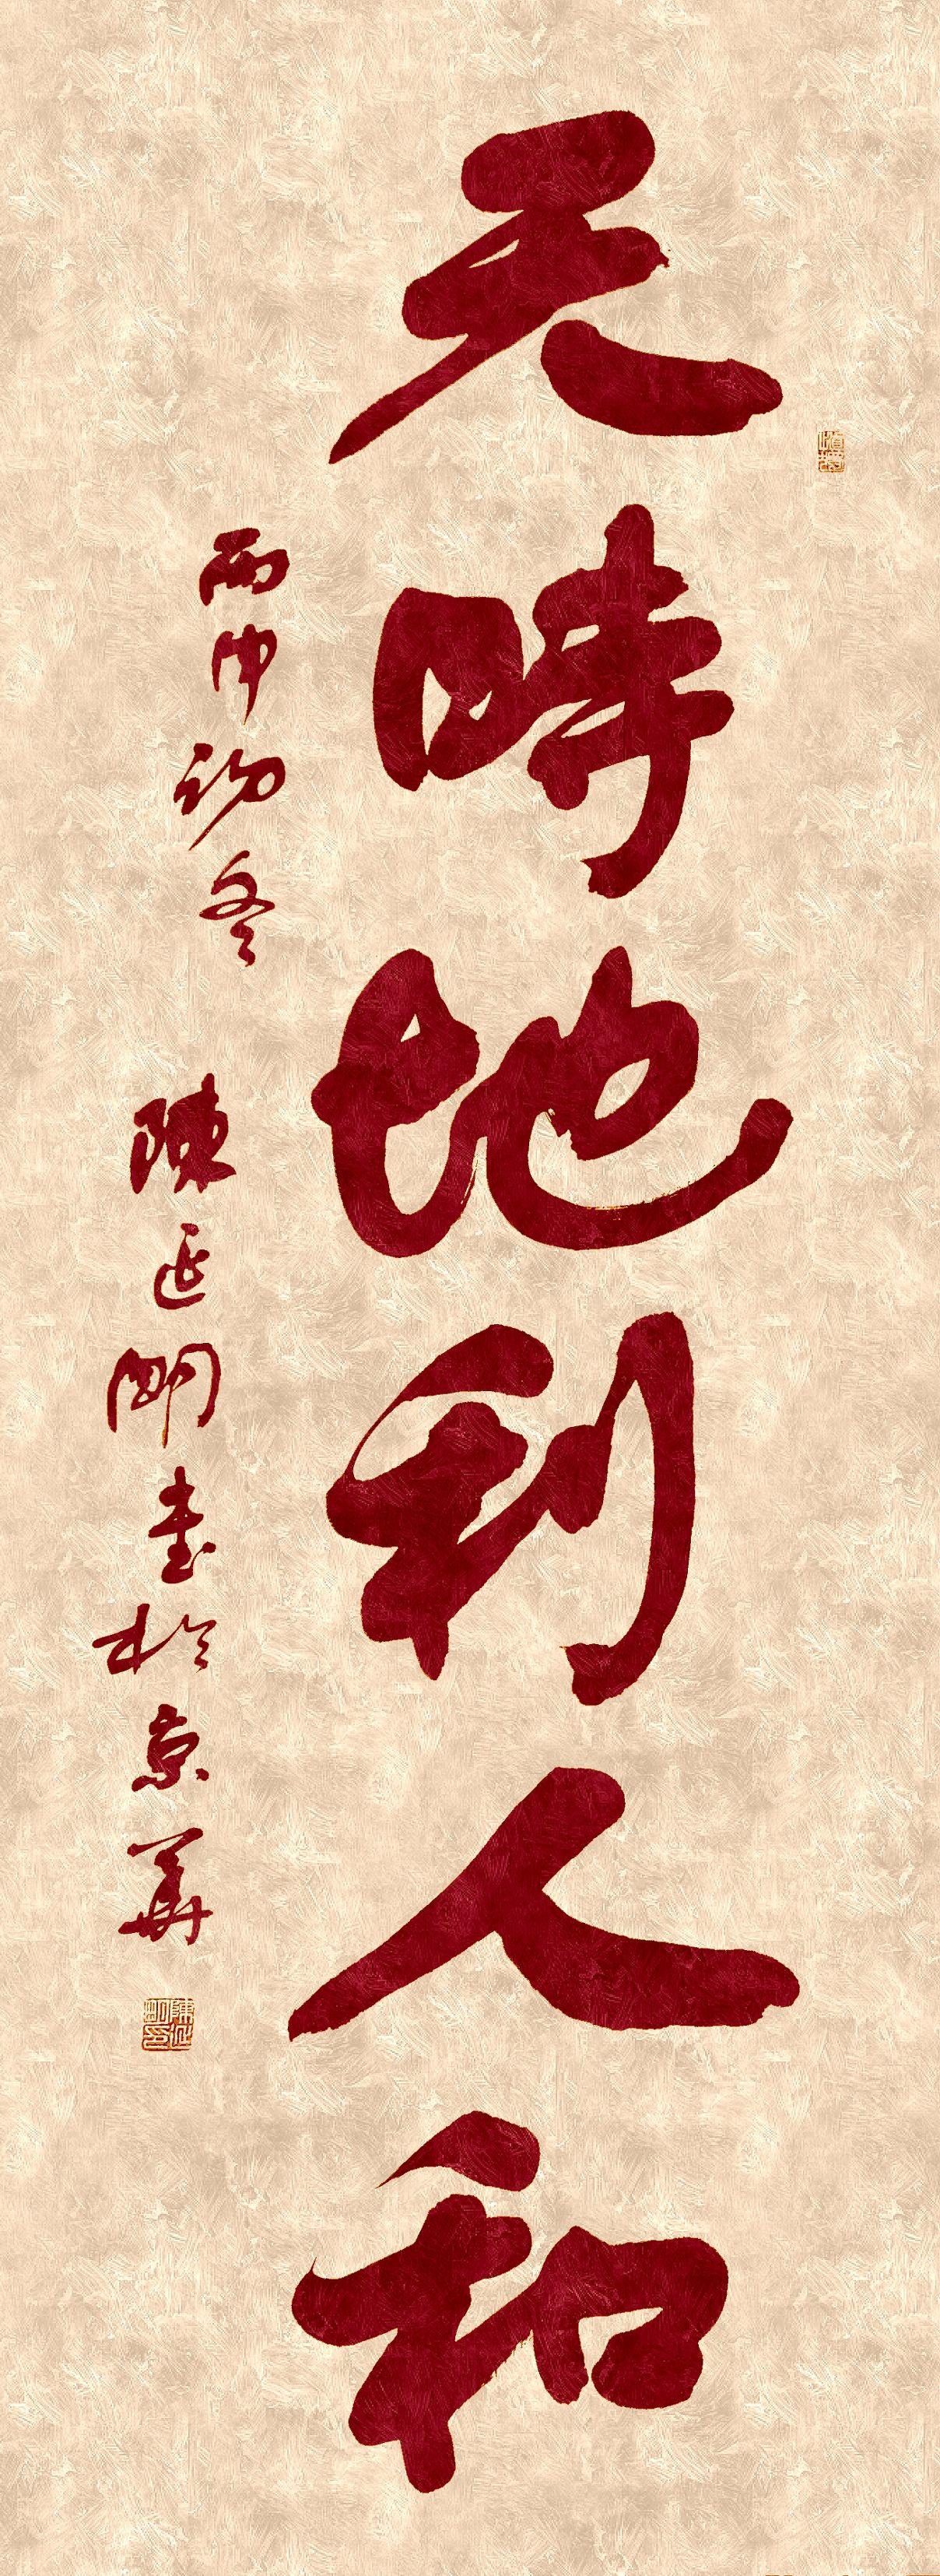 天時地利人和
丙申初冬
陳延開書於京華